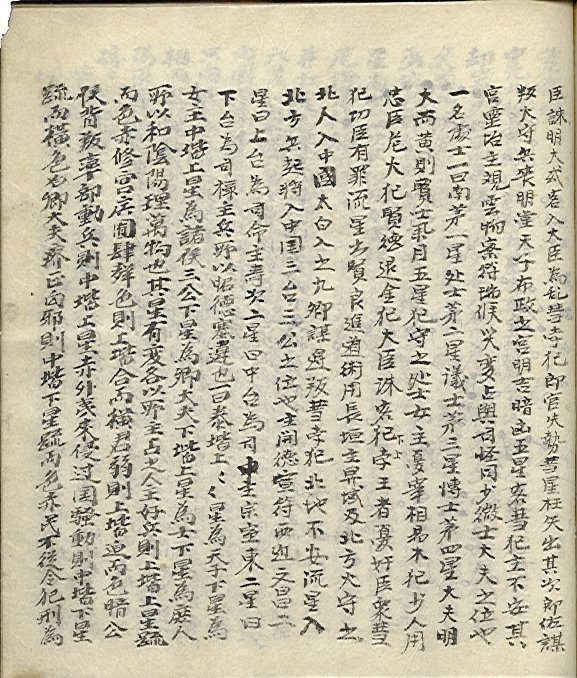 臣誅明大戎客入大臣為乱彗孛犯郎官大勢彗星枉矢出其次郎佐謀
叛火守兵喪明堂天子布政之宮明吉暗凶五星客彗犯主不安其
宮灵治主視雲物察符瑞候災変占與司怪同少微士大夫之位也
一名處士一曰南苐一星处士苐二星議士苐三星博士苐四星大夫明
大而黄則賢士飛月五星犯守之处士女主憂宰相易木犯少人用
忠臣危火犯賢徳退金犯大臣誅客犯孛王者憂奸臣衆彗
犯功臣有罪流星出賢良進道術用長垣主界域及北方火守之
北人入中國太白入之九卿謀逆叛彗孛犯北地不安流星入
北方兵起將入中国三台三公之位也主開徳宣符西近文昌二
星曰上台為司命主寿次二星曰中台為司中主宗室東二星曰
下台為司禄主兵所以昭徳塞違也曰泰堦上〻星為天子下星為
女主中堦上星為諸侯三公下星為卿大夫下堦上星為士下星為庶人
所以和陰陽理萬物也其星有変各以所主占之人主好兵則上堦上星疏
而色赤修宮広囿肆声色則上堦合而横君弱則上堦迫而色暗公
侯背叛率部動兵則中堦上星赤外戎來侵边国騒動則中堦下星
疏而横色白卿大夫廃正向邪則中堦下星疏而色赤民不從令犯刑為